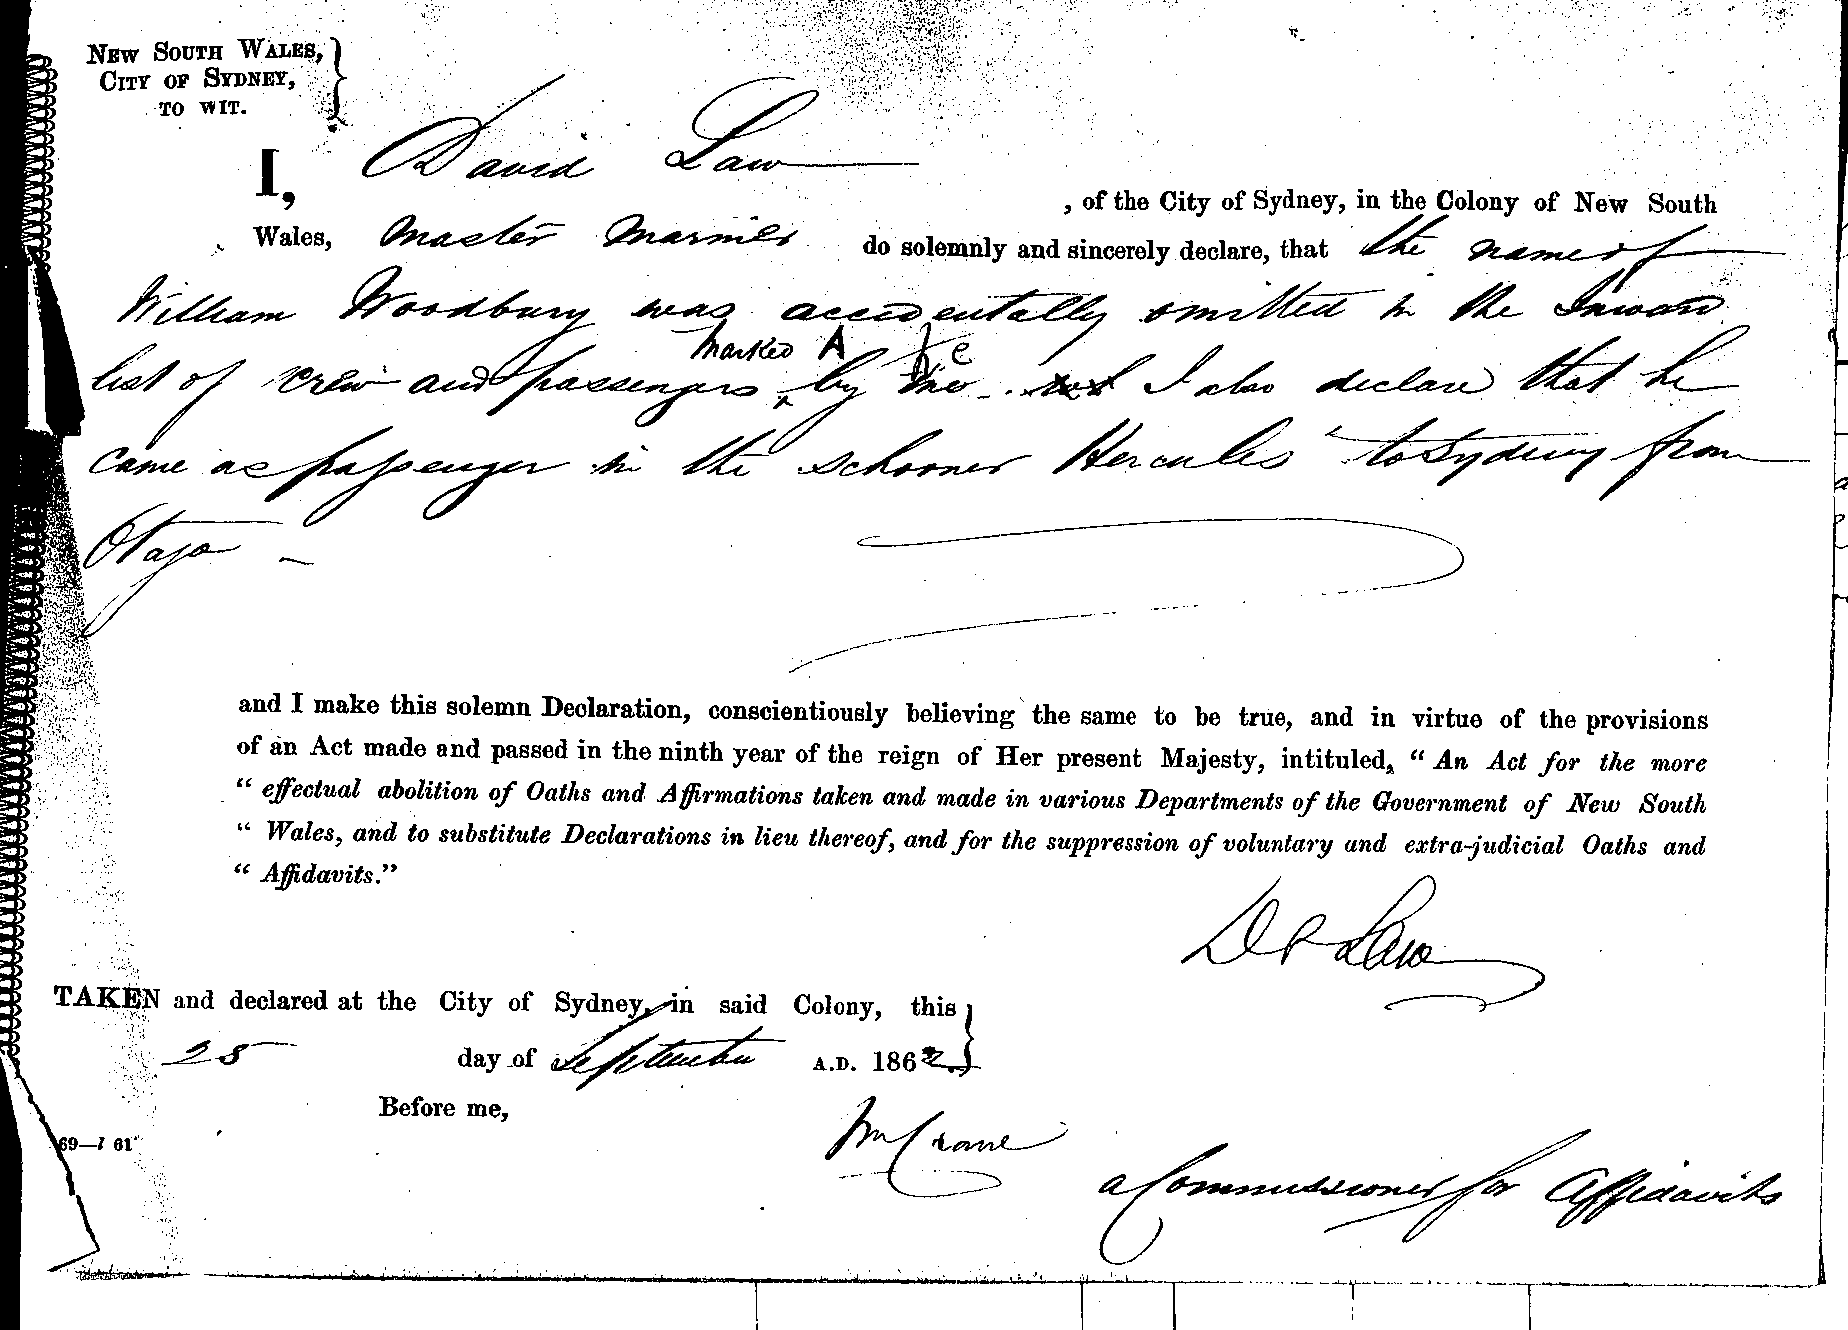 NEW SOUTH WALES,
CITY OF SYDNEY,
TO WIT.
I, David Law
, of the City of Sydney, in the Colony of New South
Wales, Master Mariner do solemnly and sincerely declare, that the name of
William Woodbury was accidentally omitted in the Inward
marked A
list of crew and passengers by me I also declare that he
came as passenger in the schooner Hercules" to Sydney from
Otago –
and I make this solemn Declaration, conscientiously believing the same to be true, and in virtue of the provisions
of an Act made and passed in the ninth year of the reign of Her present Majesty, intituled, " An Act for the more
" effectual abolition of Oaths and Affirmations taken and made in various Departments of the Government of New South
" Wales, and to substitute Declarations in lieu thereof, and for the suppression of voluntary and extra-judicial Oaths and
" Affidavits."
D P Law
TAKEN and declared at the City of Sydney, in said Colony, this
25 day of September A.D. 1862
Before me,
Wm Crane
a Commissioner for Affidavits
69—7 61